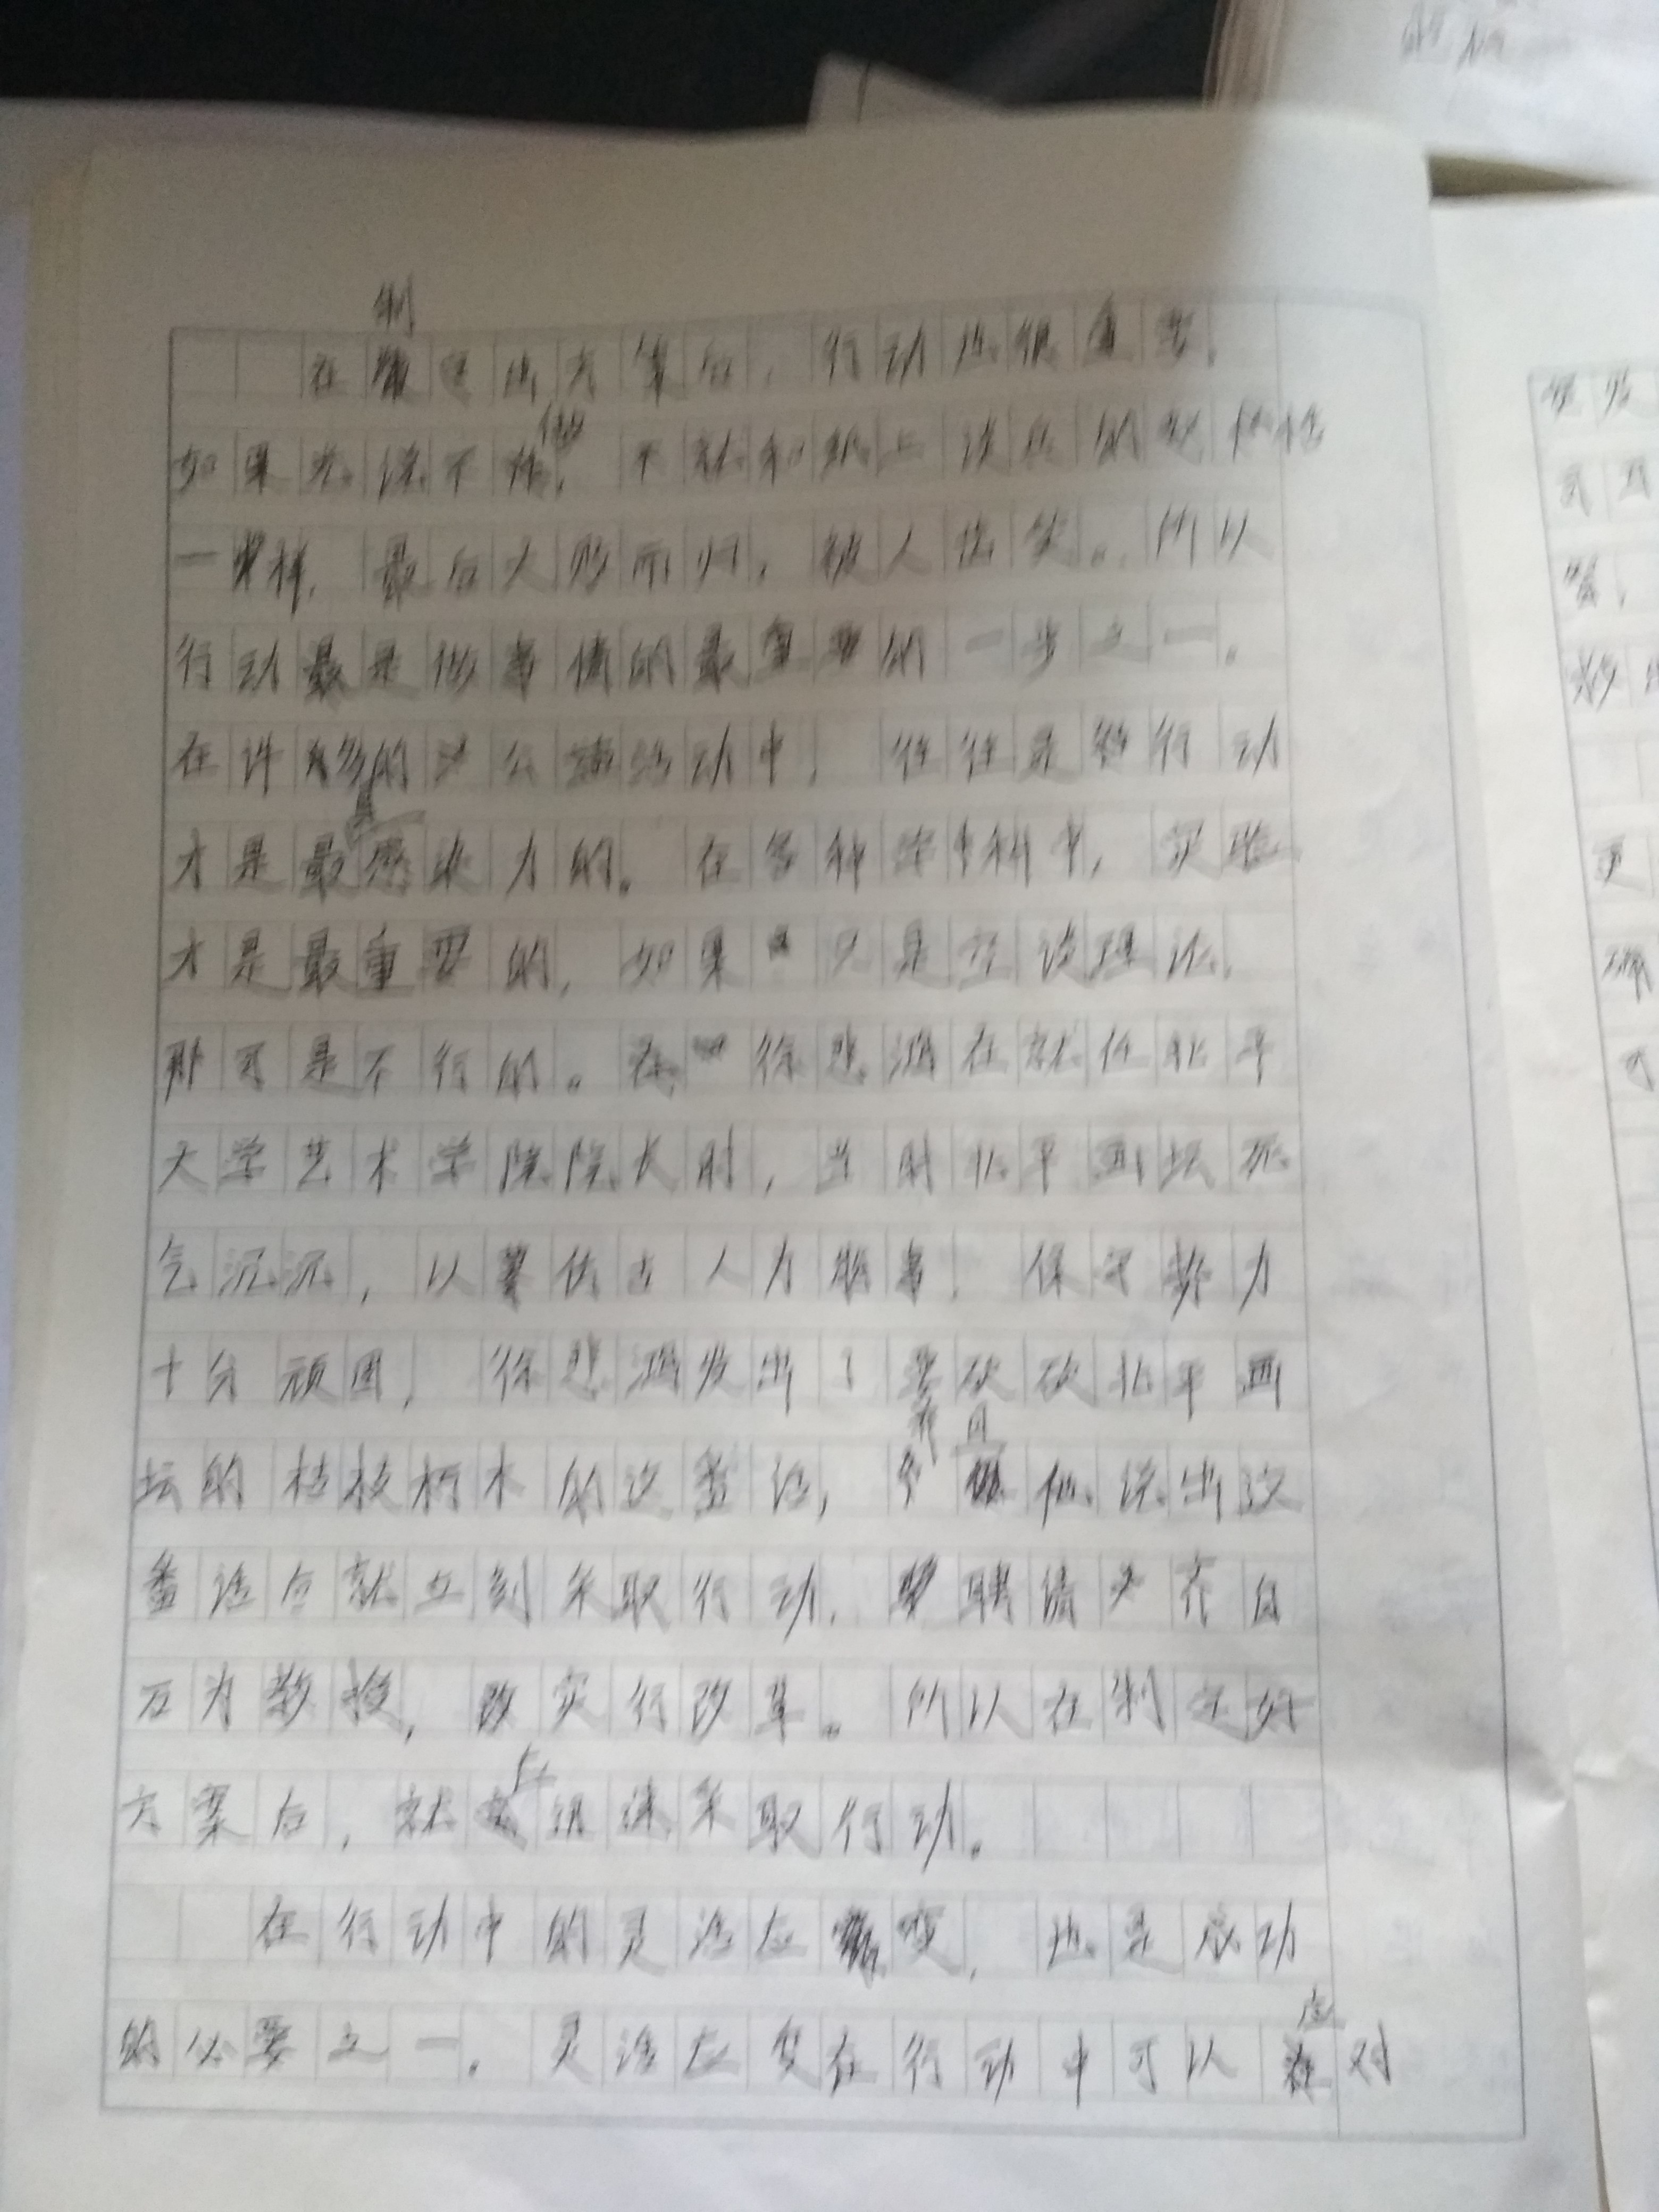 在制定出方案后，行动也很重要，
如果光说不做，不就和纸上谈兵的赵括
一样，最后大败而归，被人耻笑。所以
行动是做事情的最重要的一步之一。
在许多的公益活动中，往往是行动
才是最具感染力的。在各种学科中，实验
才是最重要的，如果只是空谈理论，
那可是不行的。徐悲鸿在就任北平
大学艺术学院院长时，当时北平画坛死
气沉沉，以摹仿古人为能事，保守势力
十分顽固，徐悲鸿发出了要砍砍北平画
坛的枯枝朽木的这番话，而且他说出这
番话后就立刻采取行动，聘请齐白
石为教授，实行改革。所以在制定好
方案后，就应迅速采取行动。
在行动中的灵活应变，也是成功
的必要之一。灵活应变在行动中可以应对